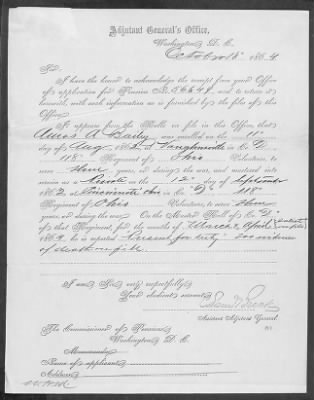 Adjutant General's Office,
Washington, D. C.
October 18" 1864
Sir:
I have the honor to acknowledge the receipt from your Office
of application for Pension No. 56641, and to return it
herewith, with such information as is furnished by the files of this
Office.
It appears from the Rolls on file in this Office, that
A. Bailey was enrolled on the 11"
day of Aug 1862, at Vaughnsville in Co. D
118" Regiment of Ohio Volunteers, to
serve three years, or during the war, and mustered into
service as a Private on the 12" of September
1862, at Cincinnati Ohio in Co. "D" 118"
Regiment of Ohio Volunteers, to serve three
years, or during the war. On the Muster Roll of Co. "D"
of that Regiment, for the months of April
186 he is reported Present for duty
of death on file.
I am, Sir, very respectfully,
Your obedient servant,
Assistant Adjutant General.
The Commissioner of Pensions
Washington, D. C.
Memoranda
Name of applicant
Address